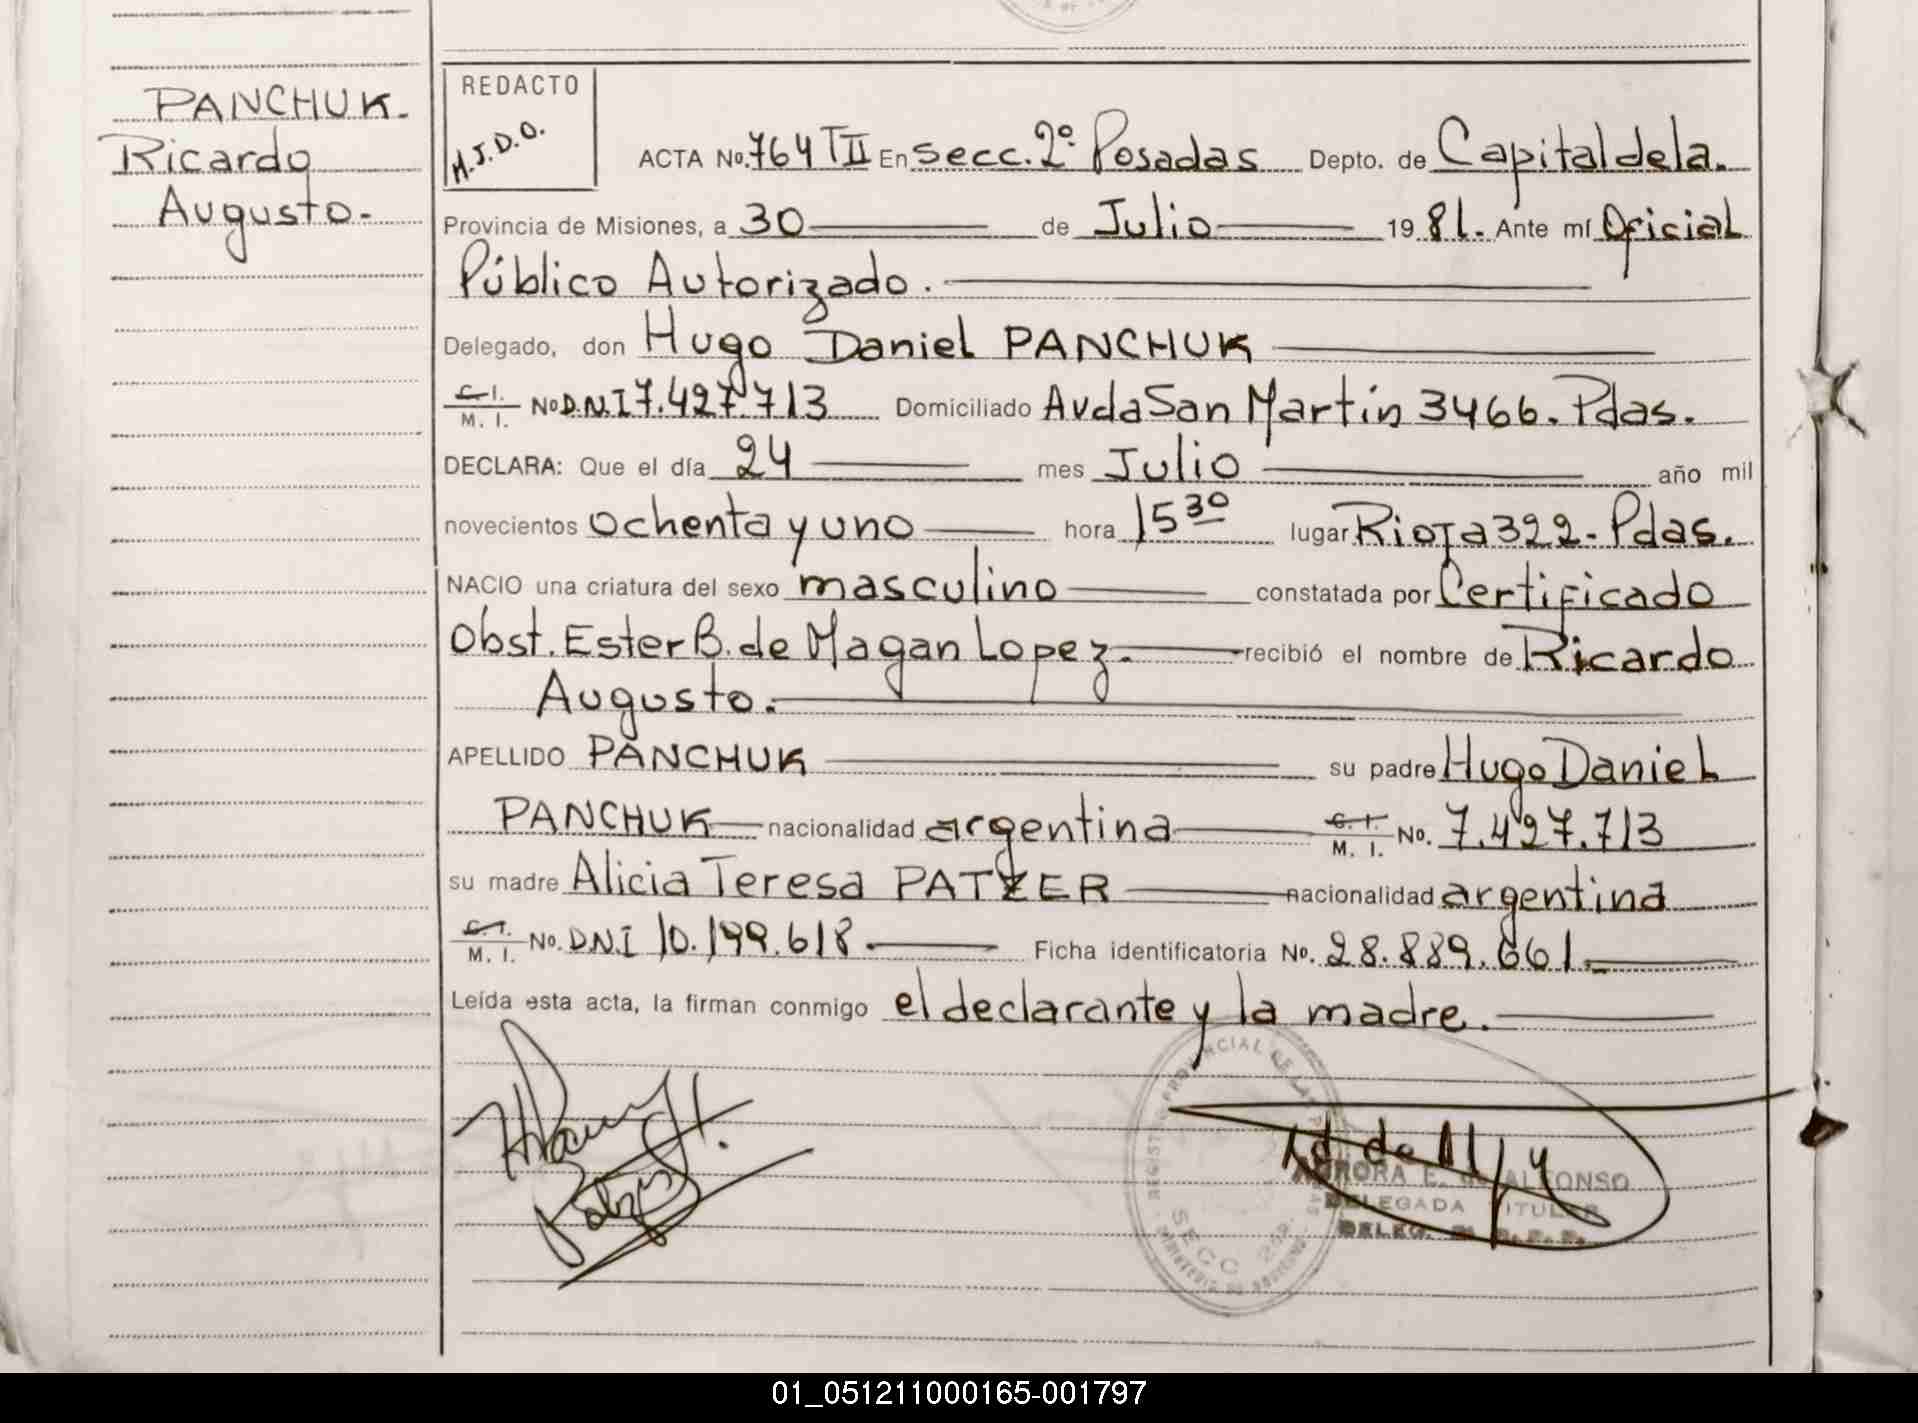 PANCHUK.
Ricardo
Augusto.-
REDACTO
M.J.D.O.
ACTA No. 764 TII En secc. 2º Posadas Depto. de Capital de la.
Provincia de Misiones, a 30 de Julio 1981. Ante mí Oficial
Público Autorizado.
Delegado, don Hugo Daniel PANCHUK
C.I. M. I. No D.N.I 7.427.713 Domiciliado Avda San Martin 3466. Pdas.
DECLARA: Que el día 24 mes Julio año mil
novecientos ochenta y uno hora 15 30 lugar Rioja 322- Pdas.
NACIO una criatura del sexo masculino constatada por Certificado
Obst. Ester B. de Magan Lopez. recibió el nombre de Ricardo
Augusto.
APELLIDO PANCHUK su padre Hugo Daniel
PANCHUK nacionalidad argentina C. I. M. I. No. 7.427.713
su madre Alicia Teresa PATZER nacionalidad argentina
C. I. M. I. No. D.N.I 10.199.618.- Ficha identificatoria No. 28.889.661.-
Leída esta acta, la firman conmigo el declarante y la madre.
REGISTRO PROVINCIAL DE LAS
SECC 2da.
AURORA E. de ALFONSO
DELEGADA TITULAR
DELEG.
01_051211000165-001797